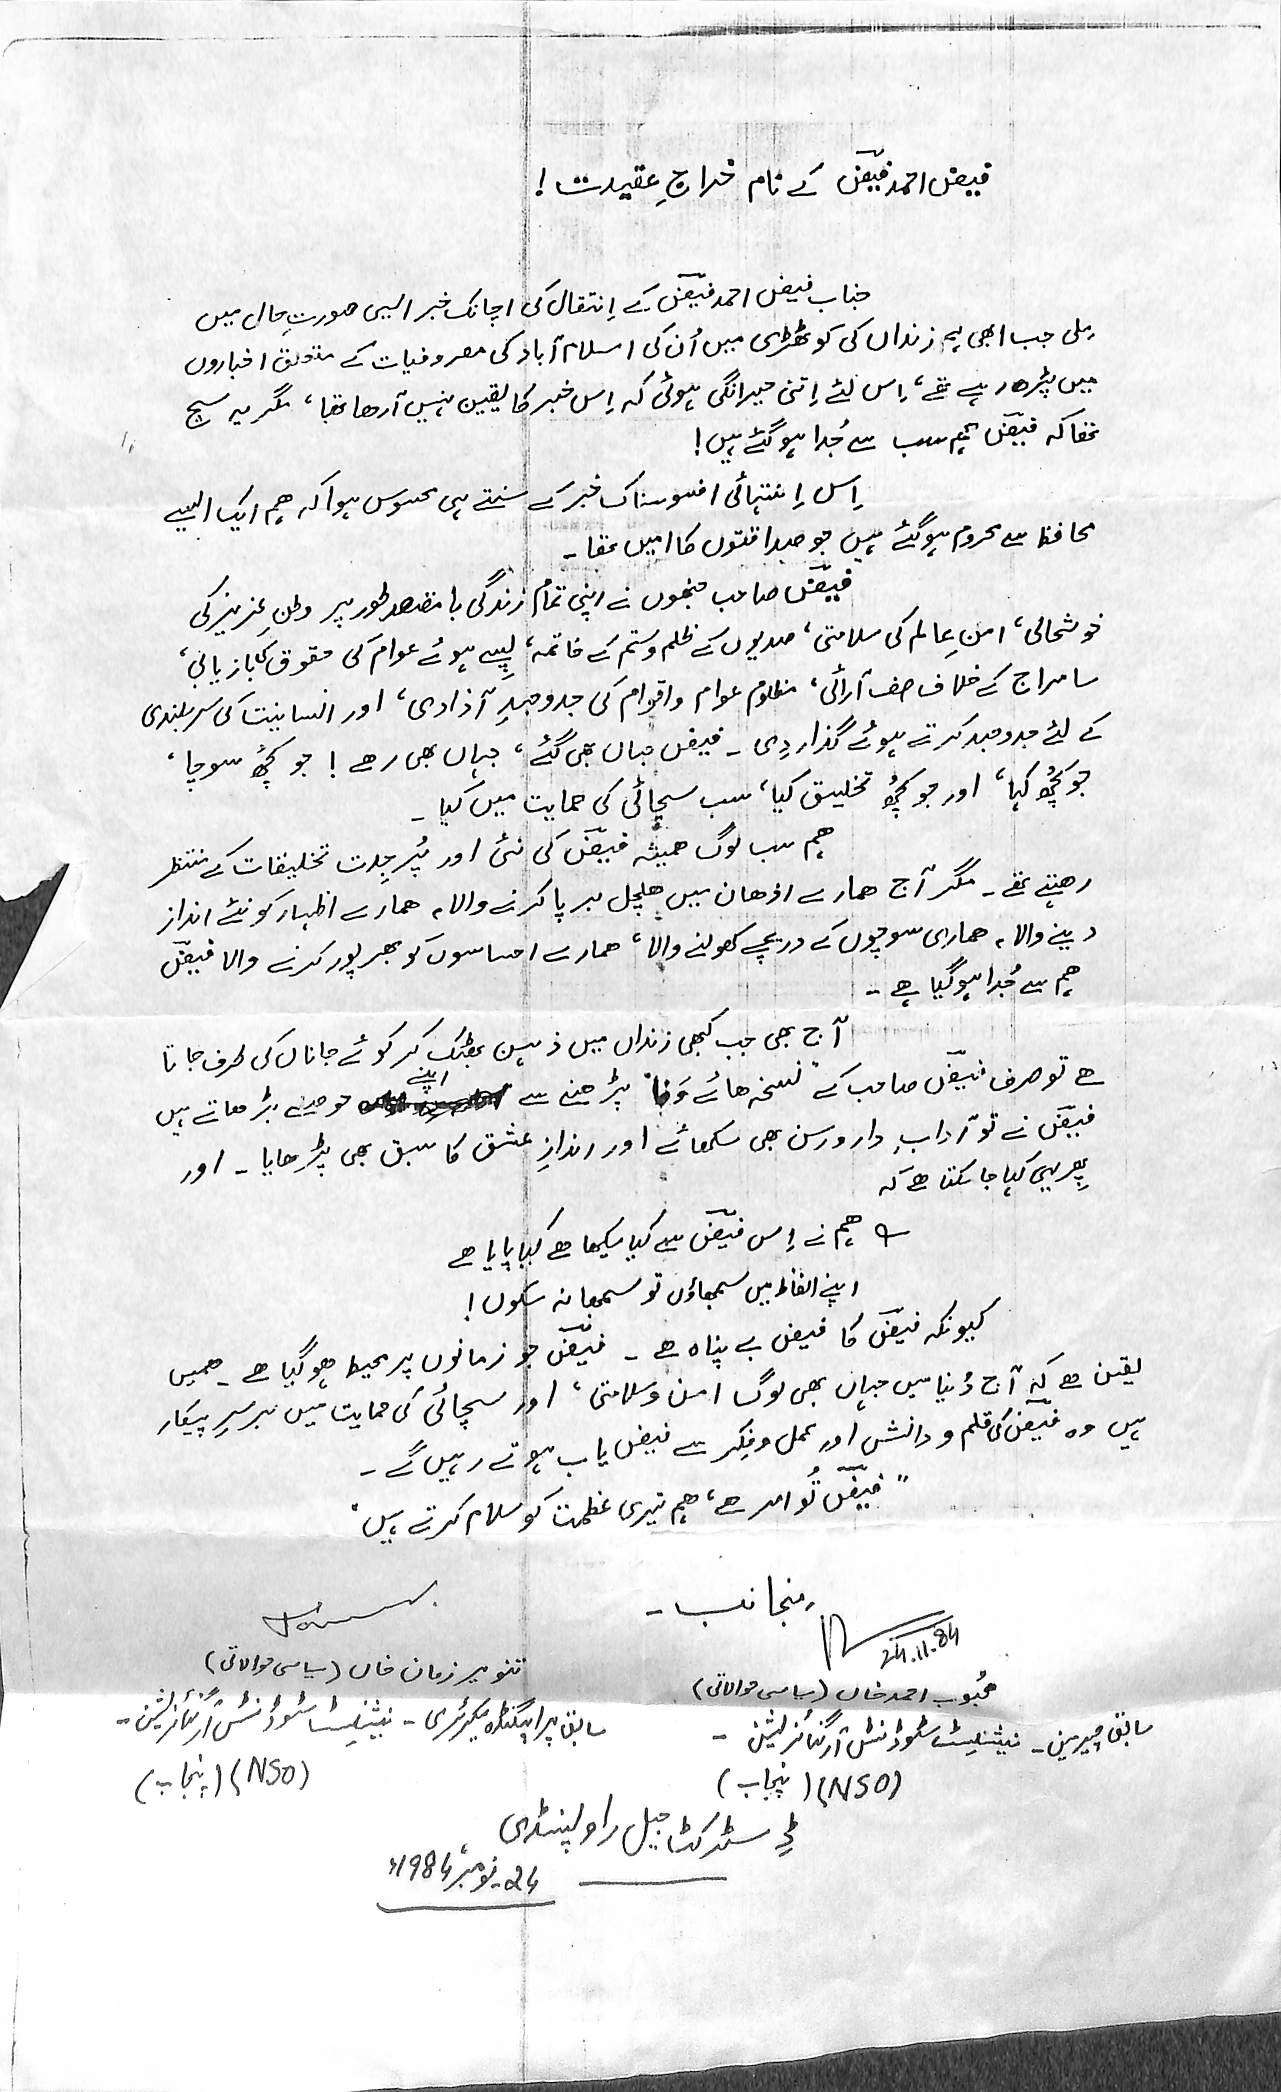 فیض احمد فیضؔ کے نام خراجِ عقیدت !
جناب فیض احمد فیضؔ کے اِنتقال کی اچانک خبر ایسی صورتِ حال میں
مِلی جب ابھی ہم زنداں کی کوٹھڑی میں اُن کی اسلام آباد کی مصروفیات کے متعلق اخباروں
میں پڑھ رہے تھے، اِس لئے اِتنی حیرانگی ہوئی کہ اِس خبر کا یقین نہیں آرھا تھا، مگر یہ سچ
تھا کہ فیضؔ ہم سب سے جُدا ہو گئے ہیں!
اِس اِنتہائی افسوسناک خبر کے سنتے ہی محسوس ہوا کہ ھم ایک ایسے
محافظ سے محروم ہو گئے ہیں جو صداقتوں کا امیں تھا ۔
فیضؔ صاحب جنہوں نے اپنی تمام زندگی با مقصد طور پر وطنِ عزیز کی
خوشحالی، امنِ عالم کی سلامتی، صدیوں کے ظلم و ستم کے خاتمہ، پِسے ہوئے عوام کی حقوق کی بازیابی،
سامراج کے خلاف صف آرائی، مظلوم عوام و اقوام کی جدوجہدِ آذادی، اور انسانیت کی سربلندی
کے لئے جدوجہد کرتے ہوئے گذار دِی ۔ فیض جہاں بھی گئے، جہاں بھی رھے ! جو کچُھ سوچا،
جو کچُھ کہا، اور جو کچُھ تخلیق کیا، سب سچائی کی حمایت میں کیا ۔
ھم سب لوگ ھمیشہ فیضؔ کی نئی اور پُر جِدت تخلیقات کے منتظر
رھتے تھے ۔ مگر آج ھمارے اذھان میں ھلچل برپا کرنے والا، ھمارے اظہار کو نئے انداز
دینے والا، ھماری سوچوں کے دریچے کھولنے والا، ھمارے احساسوں کو بھرپور کرنے والا فیضؔ
ھم سے جُدا ہو گیا ہے ۔
آج بھی جب کبھی زنداں میں ذہین بھٹک کر کوئے جاناں کی طرف جاتا
ھے تو صرف فیضؔ صاحب کے "نسخہ ھائے وَفا" پڑھنے سے اپنے حوصلے بڑھاتے ہیں
فیضؔ نے تو آدابِ دار و رسن بھی سکھائے اور اندازِ عشق کا سبق بھی پڑھایا ۔ اور
پِھر یہی کہا جا سکتا ھے کہ
ھم نے اِس فیضؔ سے کیا سیکھا ھے کیا پایا ھے
اپنے الفاظ میں سمجھاؤں تو سمجھا نہ سکوں!
کیونکہ فیضؔ کا فیض بے پناہ ھے ۔ فیضؔ جو زمانوں پر محیط ھو گیا ھے ۔ ھمیں
یقین ھے کہ آج دُنیا میں جہاں بھی لوگ امن و سلامتی، اور سچائی کی حمایت میں برسرِ پیکار
ہیں وہ فیضؔ کی قلم و دانش اور عمل و فِکر سے فیض یاب ہوتے رہیں گے ۔
"فیضؔ تُو امر ھے، ھم تیری عظمت کو سلام کرتے ہیں"
مِنجانب ۔
24.11.84
محبُوب احمد خاں (سیاسی حوالاتی)
سابق چیرمین ۔ نیشنلِسٹ سٹوڈنٹس آرگنائزیشن ۔
(NSO) (پنجاب)
تنویر زمان خاں (سیاسی حوالاتی)
سابق پراپیگنڈہ سیکرٹری ۔ نیشنلِسٹ سٹوڈنٹس آرگنائزیشن ۔
(NSO) (پنجاب)
ڈِسٹرکٹ جیل راولپنڈی
24 نومبر 1984ء